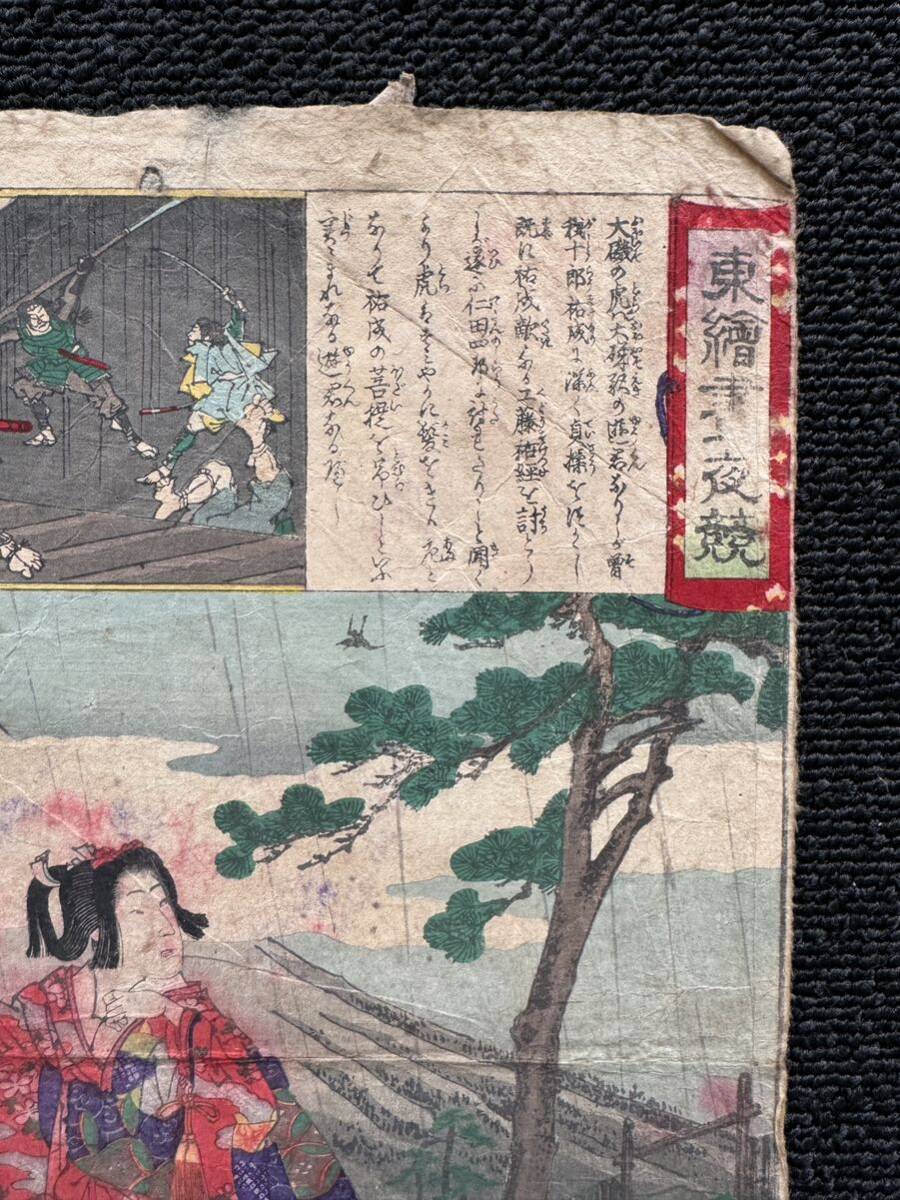 東繪晝夜競
大磯の虎ハ大磯駅の遊君なりしが曽
我十郎祐成に深く貞操を尽かし
既に祐成敵なる工藤祐経を討とり
しが遂に仁田四郎にうたれたりしと聞く
より虎ハすミやかに髪をきり尼と
なりて祐成の菩提を吊ひしといふ
実にまれなる遊君なる哉